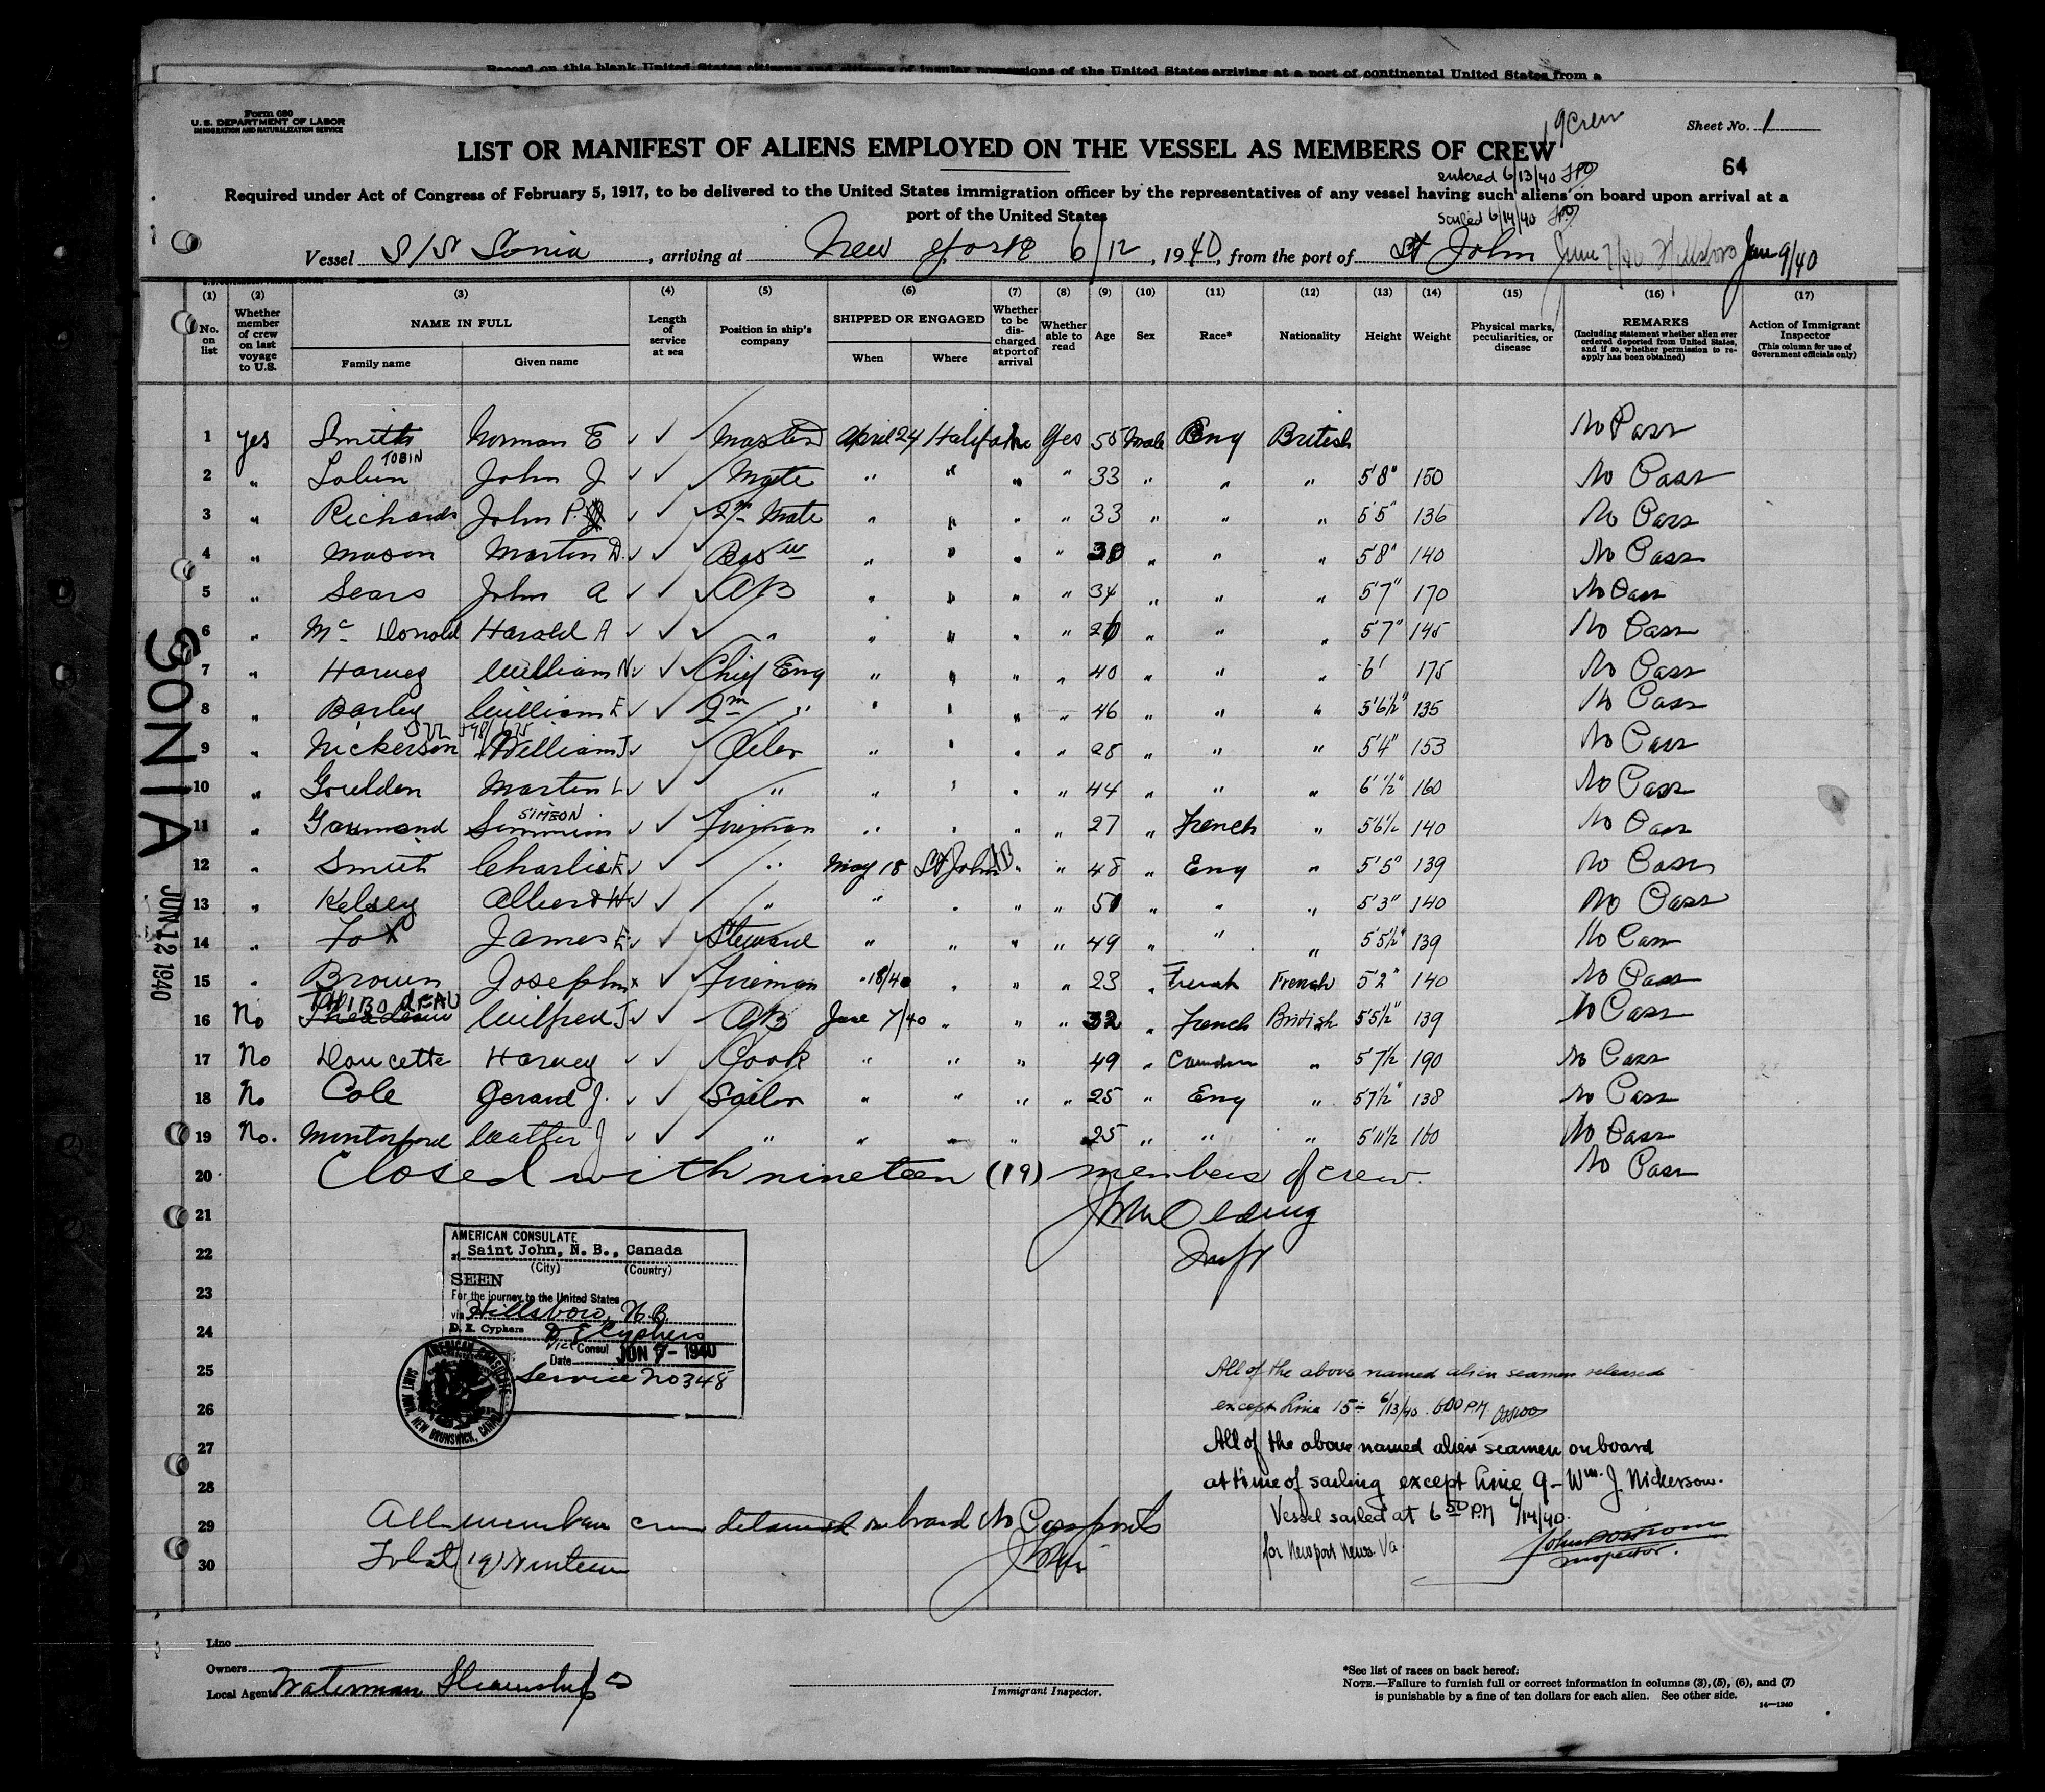 Record on this blank United States citizens and citizens of insular possessions of the United States arriving at a port of continental United States from a
Form 680
U. S. DEPARTMENT OF LABOR
IMMIGRATION AND NATURALIZATION SERVICE
19 Crew
Sheet No. 1
LIST OR MANIFEST OF ALIENS EMPLOYED ON THE VESSEL AS MEMBERS OF CREW
64
entered 6/13/40
Required under Act of Congress of February 5, 1917, to be delivered to the United States immigration officer by the representatives of any vessel having such aliens on board upon arrival at a
port of the United States
sailed 6/14/40
Vessel S/S Sonia, arriving at New York 6/12, 1940, from the port of St John June 7/40 Hillsboro June 9/40
(1) (2) (3) (4) (5) (6) (7) (8) (9) (10) (11) (12) (13) (14) (15) (16) (17)
No. on list
Whether member of crew on last voyage to U.S.
NAME IN FULL
Family name
Given name
Length of service at sea
Position in ship's company
SHIPPED OR ENGAGED
When
Where
Whether to be discharged at port of arrival
Whether able to read
Age
Sex
Race*
Nationality
Height
Weight
Physical marks, peculiarities, or disease
REMARKS
(Including statement whether alien ever ordered deported from United States, and if so, whether permission to reapply has been obtained)
Action of Immigrant Inspector
(This column for use of Government officials only)
1 yes Smith Norman E ✓ ✓ Master April 24 Halifax No Yes 55 Male Eng British No Pass
2 " Tobin TOBIN John J ✓ ✓ Mate " " " " 33 " " " 5'8" 150 No Pass
3 " Richards John P. ✓ ✓ 2nd Mate " " " " 33 " " " 5'5" 136 No Pass
4 " Mason Martin D. ✓ ✓ Bosn " " " " 30 " " " 5'8" 140 No Pass
5 " Sears John A ✓ ✓ AB " " " " 34 " " " 5'7" 170 No Pass
6 " Mc Donald Harold A ✓ ✓ " " " " " 26 " " " 5'7" 145 No Pass
7 " Harvey William N ✓ ✓ Chief Eng " " " " 40 " " " 6' 175 No Pass
8 " Barley William F ✓ ✓ 2nd " " " " " 46 " " " 5'6½" 135 No Pass
9 " Nickerson William J ✓ Oiler " " " " 28 " " " 5'4" 153 No Pass
10 " Goulden Martin L ✓ ✓ " " " " " 44 " " " 6'½" 160 No Pass
11 " SIMEON ✓ ✓ Fireman " " " " 27 " French " 5'6½ 140 No Pass
12 " Smith Charlie F ✓ ✓ " May 18 St John NB " " 48 " Eng " 5'5" 139 No Pass
13 " Kelsey Albert W ✓ ✓ " " " " " 51 " " " 5'3" 140 No Pass
14 " Fox James E ✓ ✓ Steward " " " " 49 " " " 5'5½" 139 No Pass
15 " Brown Joseph x ✓ Fireman " 18/40 " " " 23 " French French 5'2" 140 No Pass
16 No THIBODEAU Wilfred J ✓ ✓ AB June 7/40 " " " 32 " French British 5'5½" 139 No Pass
17 No Doucette Harvey ✓ ✓ Cook " " " 49 " Canadian " 5'7½ 190 No Pass
18 No Cole Gerard J. ✓ ✓ Sailor " " " " 25 " Eng " 5'7½" 138 No Pass
19 No. Walter J ✓ ✓ " " " " 25 " " " 5'11½ 160 No Pass
20 Closed with nineteen (19) members of crew. No Pass
21
22
23
24
25
26
27
28
29
30
AMERICAN CONSULATE
at Saint John, N. B., Canada
(City) (Country)
SEEN
For the journey to the United States
via Hillsboro, N.B.
D. E. Cyphers D E Cyphers
Vice Consul
Date JUN 7 - 1940
Service No 348
AMERICAN CONSULATE
SAINT JOHN, NEW BRUNSWICK, CANADA
All of the above named alien seamen released
except line 15 - 6/13/40 6 00 P.M.
All of the above named alien seamen on board
at time of sailing except line 9 - Wm. J. Nickerson.
Vessel sailed at 6 50 P.M 6/14/40.
for Newport News Va.
Inspector.
All members crew detained on board No Passports
Total (19) Nineteen
SONIA
JUN 12 1940
Line
Owners
Local Agents Waterman Steamship Co
Immigrant Inspector.
*See list of races on back hereof.
NOTE.—Failure to furnish full or correct information in columns (3), (5), (6), and (7)
is punishable by a fine of ten dollars for each alien. See other side.
14—1240